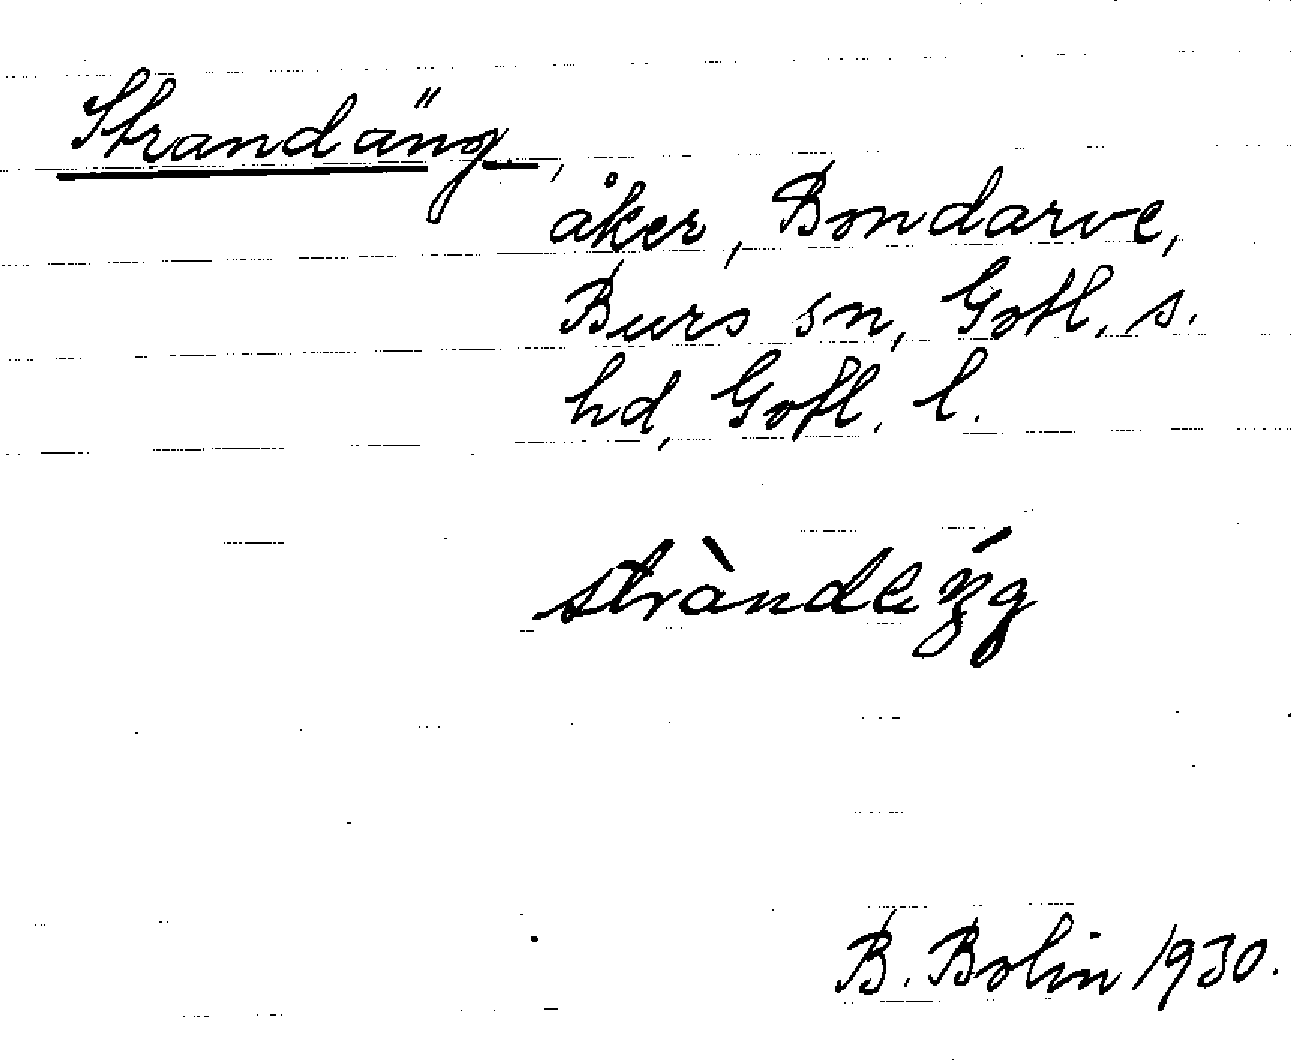 Strandäng,
åker, Bondarve,
Burs sn, Gotl. s.
hd, Gotl. l.
stràndeŋ́g
B. Bolin 1930.